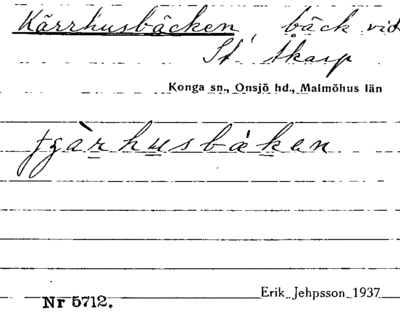 Kärrhusbäcken, bäck vid
St. Skarp
Konga sn., Onsjö hd., Malmöhus län
tjàrhusbákən
Erik Jehpsson 1937
Nr 5712.